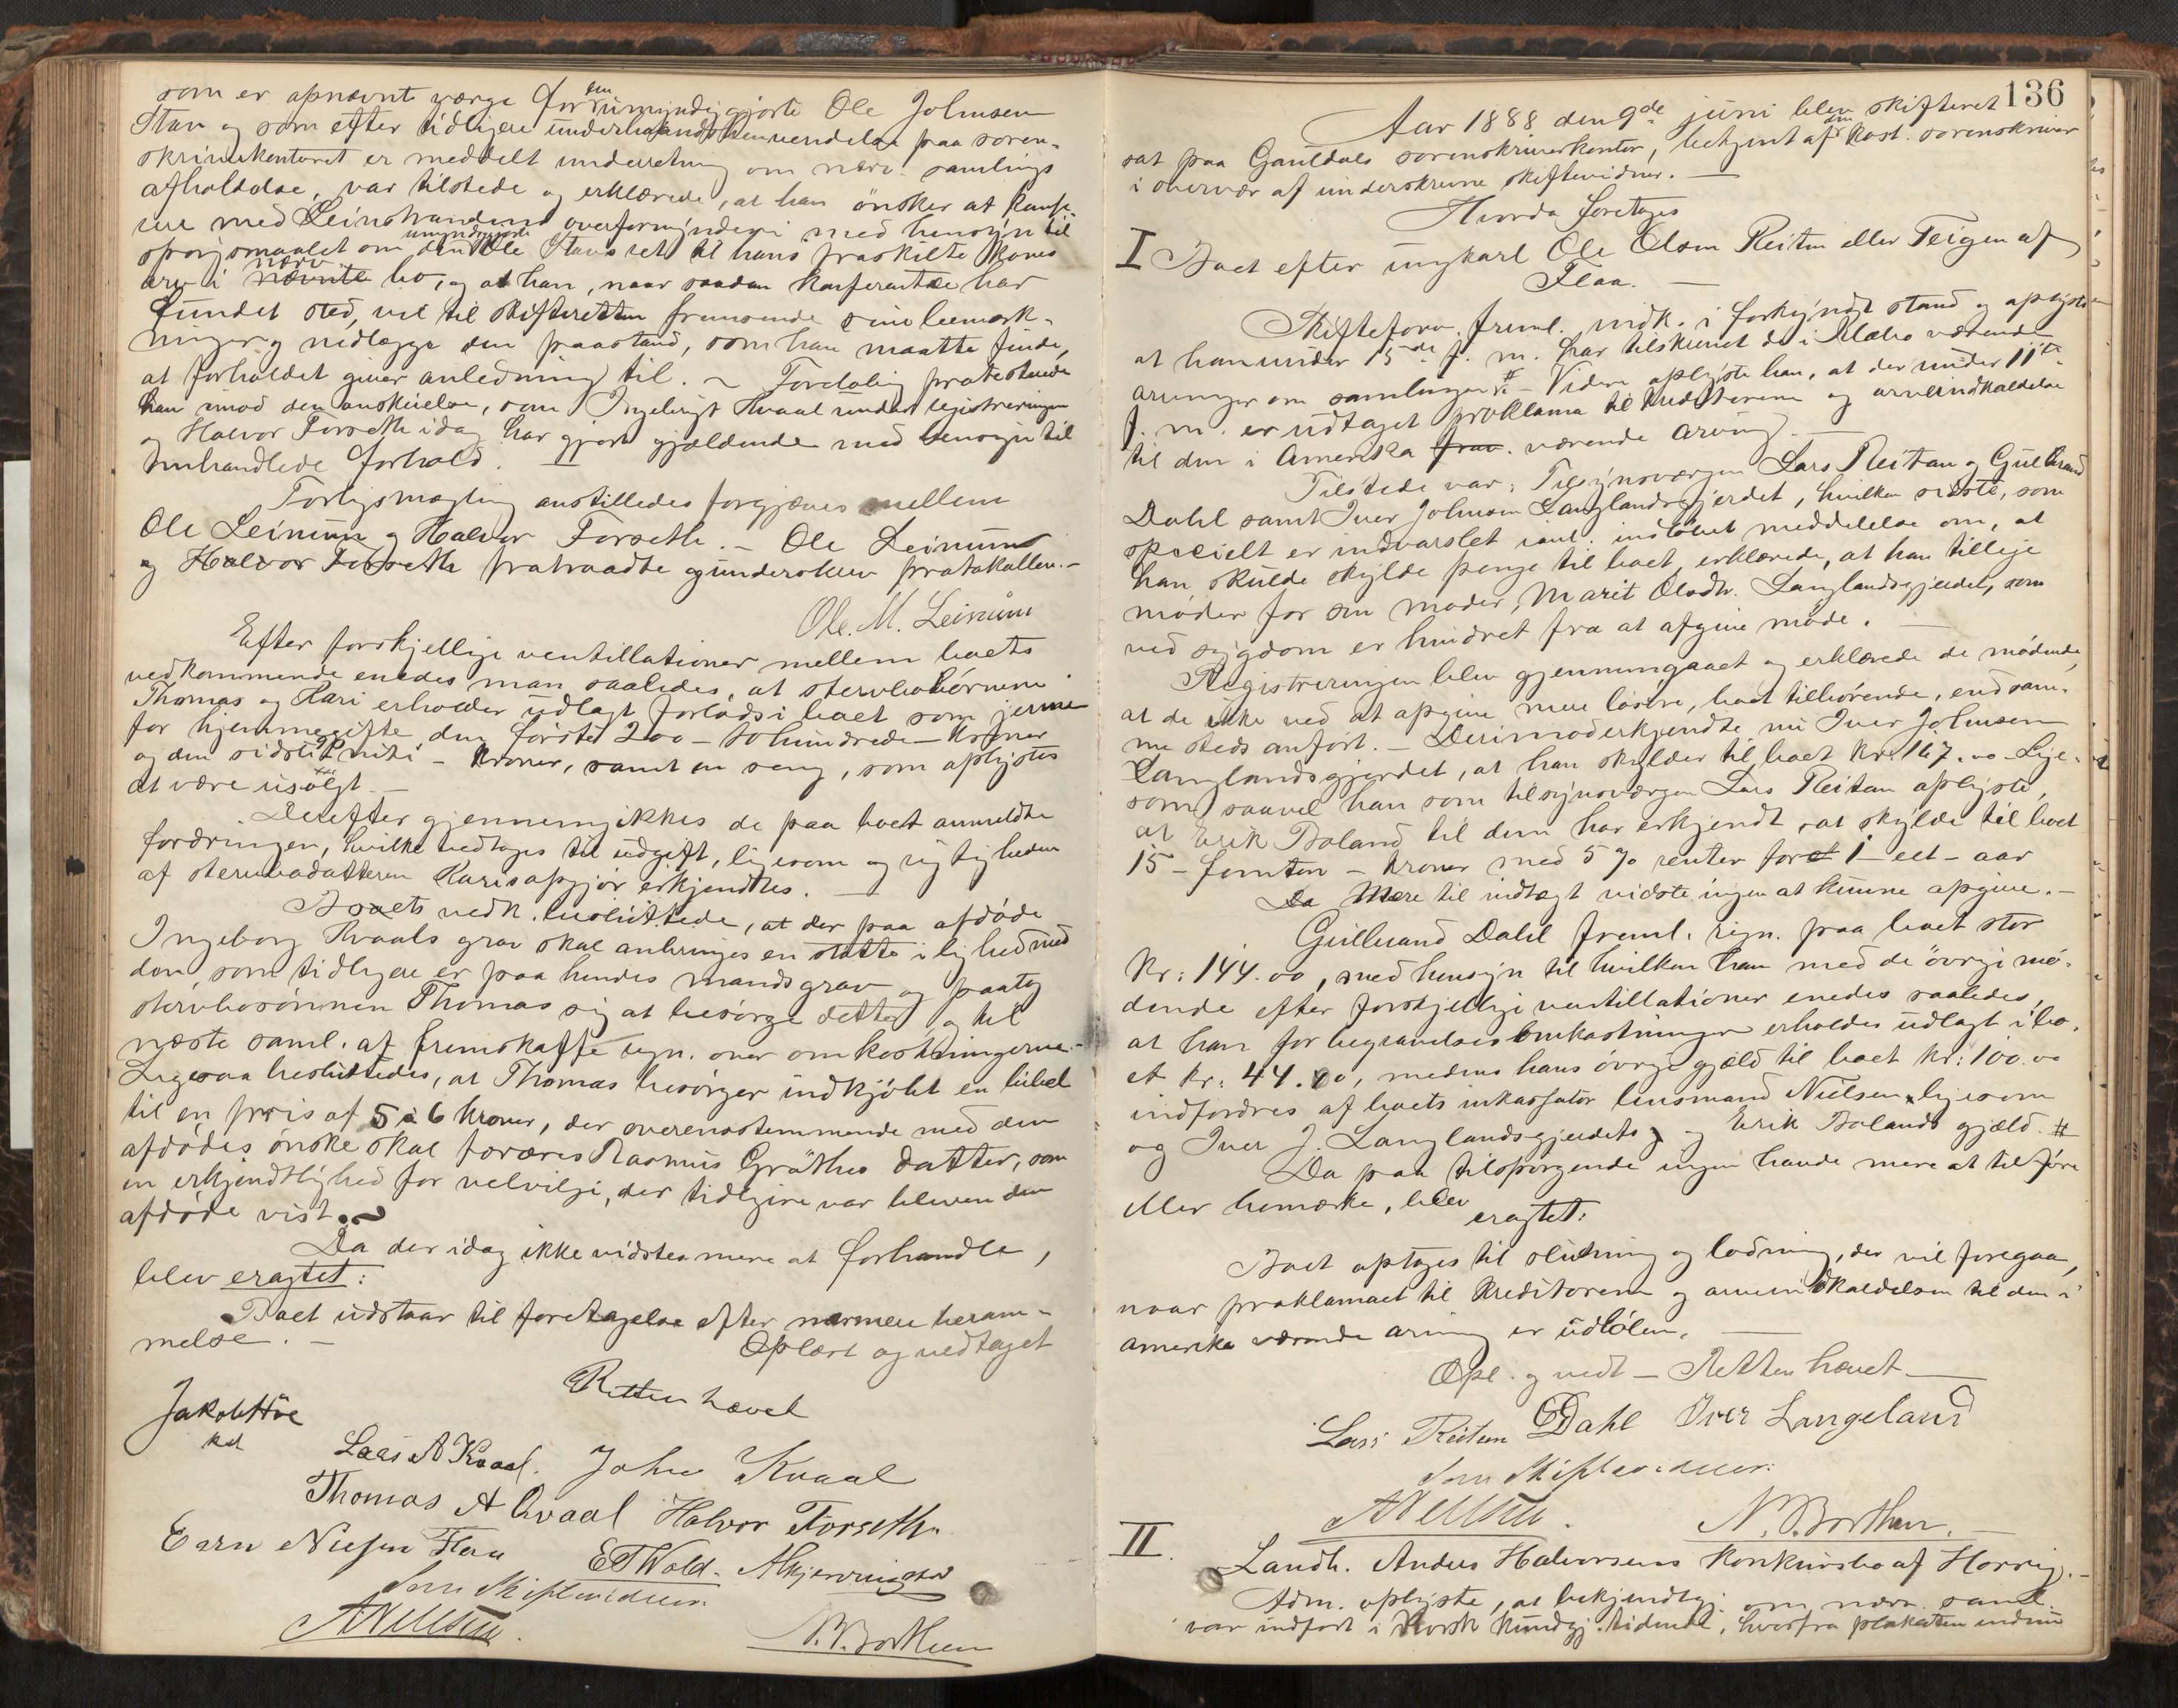 som er opnævnt værge for den umyndiggjorte Ole Johnsen
Stav og som efter tidligere underhaands henvendelse paa soren-
skriverkontoret er meddelt underretning om nærv. samlings
afholdelse, var tilstede og erklærede, at han ønsker at konfe-
rere med Leinstrandens overformynderi med hensyn til
spørgsmaalet om den umyndiggjorte Ole Stavs ret til hans fraskilte kones
arv i nærv. bo, og at han, naar saadan konferantse har
fundet sted, vil til skifteretten fremsende sine bemærk-
ninger og nedlægge den paastand, som han maatte finde,
at forholdet giver anledning til. – Foreløbig protesterede
han mod den anskuelse, som Ingebrigt Kvaal under registreringen
og Halvor Forseth idag har gjort gjældende med hensyn til
omhandlede forhold. —
Forligsmægling anstilledes forgjæves mellem
Ole Leinum og Halvor Forseth. – Ole Leinum
og Halvor Forseth fratraadte og underskrev protokollen. –
Ole. M. Leinum
Efter forskjellige ventillationer mellem boets
vedkommende enedes man saaledes, at stervbobørnene
Thomas og Kari erholder udlagt forlods i boet som
for hjemmegifte den første 200 – tohundrede – kroner
og den sidste kroner, samt en seng, som oplystes
at være usolgt. –
Derefter gjennemgikkes de paa boet anmeldte
fordringer, hvilke vedtoges til udgift, ligesom og rigtigheden
af stervbodatteren Karis opgjør erkjendtes. —
Boets vedk. besluttede, at der paa afdøde
Ingeborg Kvaals grav skal anbringes en støtte i lighed med
den, som tidligere er paa hendes mands grav og paatog
stervbosønnen Thomas sig at besørge dette, og til
næste saml. at fremskaffe regn. over omkostningerne. –
Ligesaa besluttedes, at Thomas besørger indkjøbt en bibel
til en pris af 5 à 6 kroner, der overensstemmende med den
afdødes ønske skal foræres Rasmus Gräthes datter, som
en erkjendtlighed for velvilje, der tidligere var bleven den
afdøde vist. ~
Da der idag ikke vidstes mere at forhandle,
blev eragtet:
Boet udstaar til foretagelse efter nærmere beram-
melse. –
Oplæst og vedtaget
Retten hævet
Jakob Hoe
Lars A Kvaal. John Kvaal
Thomas A Qvaal Halvor Forseth.
Stav E T Wold.
Som Skiftevidner:
A Nielsen. N. Borthen
136
Aar 1888 den 9de juni blev skifteret
sat paa Gauldals sorenskriverkontor, betjent af den kost. sorenskriver
i overvær af underskrevne skiftevidner. —
Hvorda foretoges
I Boet efter ungkarl Ole Olsen Reitan eller Teigen af
Flaa. —
Skifteforv. freml. indk. i forkyndt stand og oplyste
at han under 15de f. m. har tilskrevet de i Melhus værende
arvinger om samlingen #. – Videre oplyste han, at der under 11te
f. m. er udtaget proklama til kreditorerne og arveindkaldelse
til den i Amerika værende arving. —
Tilstede var: Tilsynsværgen Lars Reitan og Gulbrand
Dahl samt Iver Johnsen Langlandsgjerdet, hvilken sidste, som
specielt er indvarslet ianl. indløbet meddelelse om, at
han skulde skylde penge til boet, erklærede, at han tillige
møder for sin moder, Marit Olsdtr. Langlandsgjerdet, som
ved sygdom er hindret fra at afgive møde. —
Registreringen blev gjennemgaaet og erklærede de mødende,
at de ikke ved at opgive mere løsøre, boet tilhørende, end sam-
me steds anført. – Derimod erkjendte nu Iver Johnsen
Langlandsgjerdet, at han skylder til boet kr: 167.00 – Lige-
som saavel han som tilsynsværgen Lars Reitan oplyste,
at Erik Boland til dem har erkjendt, at skylde til boet
15 – femten – kroner med 5 % renter for 1 – eet – aar
Mere til indtægt vidste ingen at kunne opgive. –
Gulbrand Dahl freml. regn. paa boet stor
Kr: 144.00, med hensyn til hvilken han med de øvrige mø-
dende efter forskjellige ventillationer enedes saaledes,
at han for begravelsesomkostninger erholdes udlagt i bo-
et kr: 44.00, medens hans øvrige gjæld til boet kr: 100.00
indfordres af boets inkassator lensmand Nielsen, ligesom
og Iver J. Langlandsgjerdets og Erik Bolands gjæld. #
Da paa tilspørgende ingen havde mere at tilføre
eller bemærke, blev
eragtet:
Boet optages til slutning og lodning, der vil foregaa,
naar proklamaet til kreditorerne og arveindkaldelsen til den i
amerika værende arving er udløben. —
Opl. og vedt – Retten hævet —
Lars Reitan GDahl Iver Langeland
Som Skiftevidner:
A Nielsen. N. Borthen.
II. Landh. Anders Halvorsens konkursbo af Horrig. –
Adm. oplyste, at bekjendtgj. om nærv. saml.
var indført i Norsk kundgj. tidende, hvorfra plakaten endnu